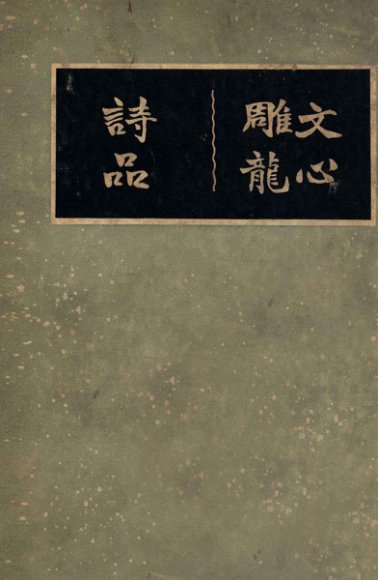 文心
雕龍
詩品